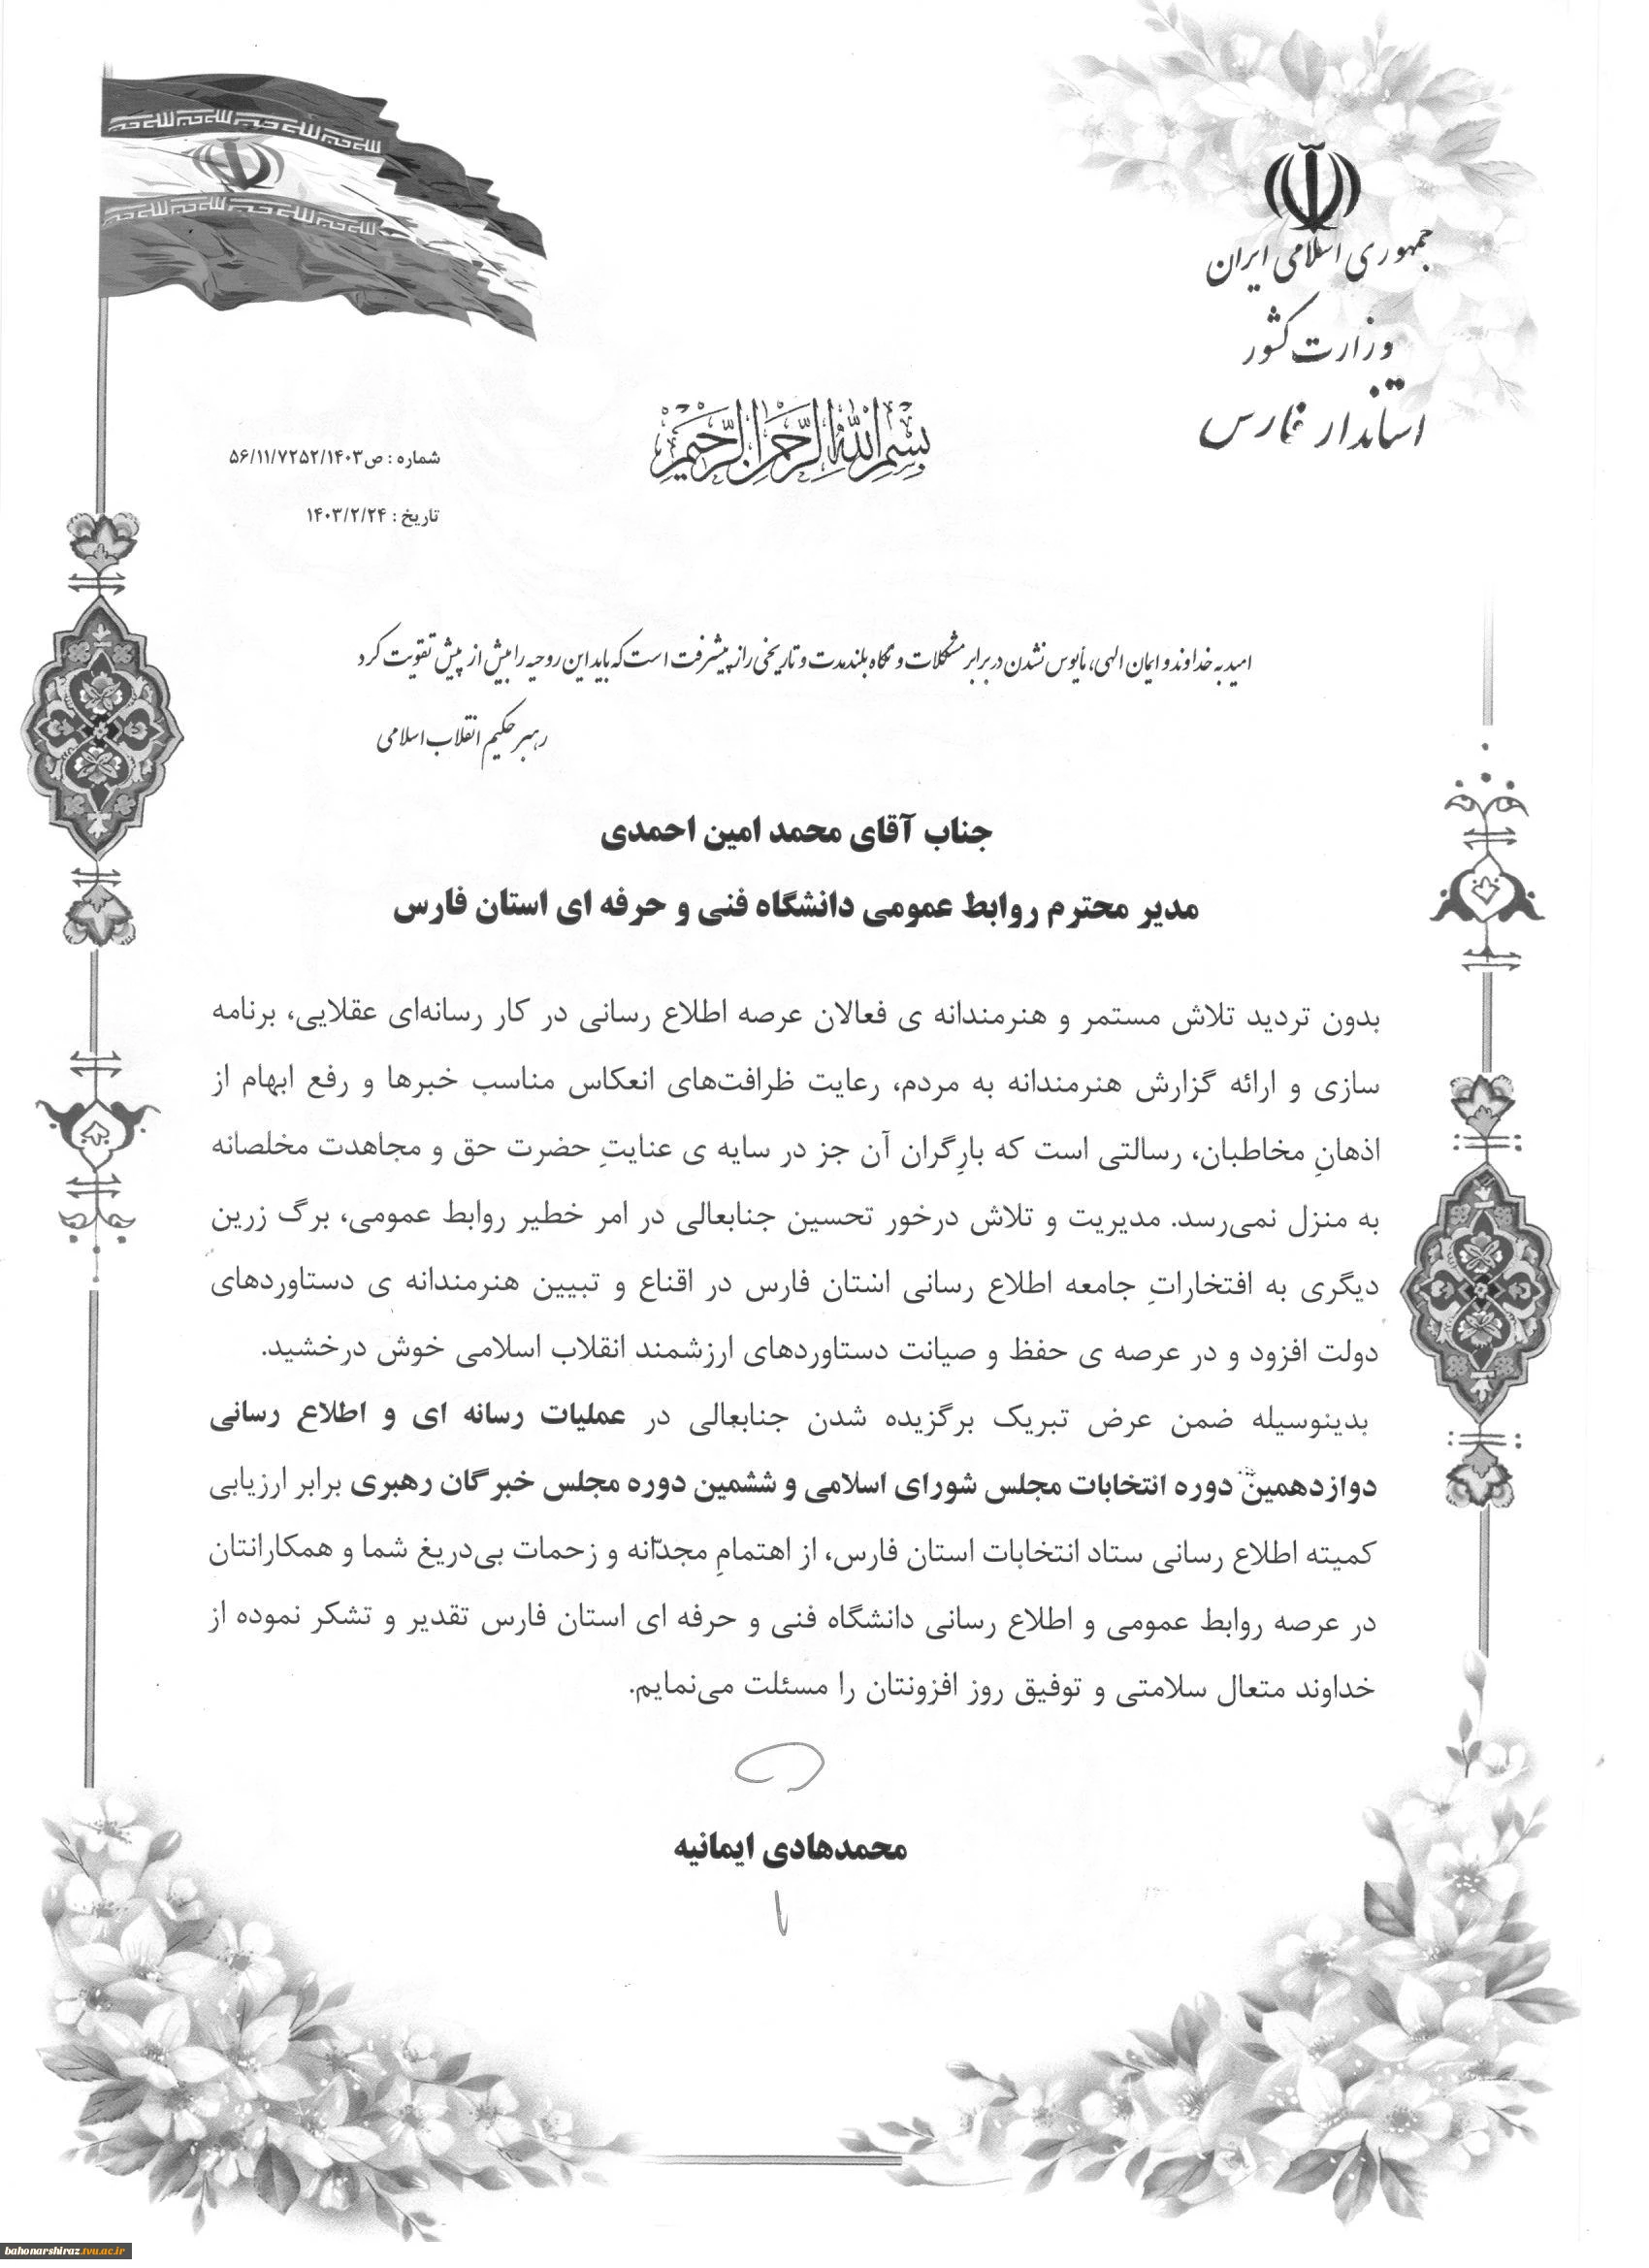 جمهوری اسلامی ایران
وزارت کشور
استاندار فارس
بسم الله الرحمن الرحیم
شماره : ص۵۶/۱۱/۷۲۵۲/۱۴۰۳
تاریخ : ۱۴۰۳/۲/۲۴
امید به خداوند و ایمان الهی، مأیوس نشدن در برابر مشکلات و نگاه بلندمدت و تاریخی راز پیشرفت است که باید این روحیه را بیش از پیش تقویت کرد
رهبر حکیم انقلاب اسلامی
جناب آقای محمد امین احمدی
مدیر محترم روابط عمومی دانشگاه فنی و حرفه ای استان فارس
بدون تردید تلاش مستمر و هنرمندانه ی فعالان عرصه اطلاع رسانی در کار رسانه‌ای عقلایی، برنامه
سازی و ارائه گزارش هنرمندانه به مردم، رعایت ظرافت‌های انعکاس مناسب خبرها و رفع ابهام از
اذهانِ مخاطبان، رسالتی است که بارِگران آن جز در سایه ی عنایتِ حضرت حق و مجاهدت مخلصانه
به منزل نمی‌رسد. مدیریت و تلاش درخور تحسین جنابعالی در امر خطیر روابط عمومی، برگ زرین
دیگری به افتخاراتِ جامعه اطلاع رسانی استان فارس در اقناع و تبیین هنرمندانه ی دستاوردهای
دولت افزود و در عرصه ی حفظ و صیانت دستاوردهای ارزشمند انقلاب اسلامی خوش درخشید.
بدینوسیله ضمن عرض تبریک برگزیده شدن جنابعالی در عملیات رسانه ای و اطلاع رسانی
دوازدهمین دوره انتخابات مجلس شورای اسلامی و ششمین دوره مجلس خبرگان رهبری برابر ارزیابی
کمیته اطلاع رسانی ستاد انتخابات استان فارس، از اهتمامِ مجدّانه و زحمات بی‌دریغ شما و همکارانتان
در عرصه روابط عمومی و اطلاع رسانی دانشگاه فنی و حرفه ای استان فارس تقدیر و تشکر نموده از
خداوند متعال سلامتی و توفیق روز افزونتان را مسئلت می‌نمایم.
محمدهادی ایمانیه
bahonarshiraz.tvu.ac.ir